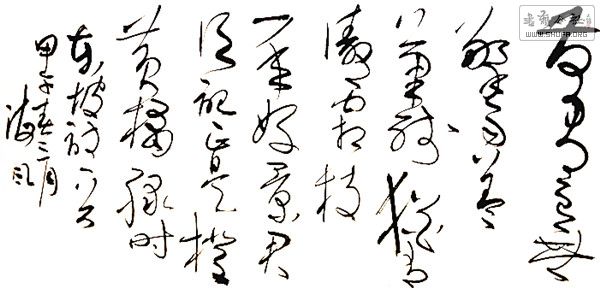 荷尽已無
擎雨盖
菊残犹有
傲霜枝
一年好景君
须记正是橙
黄橘绿时
东坡诗一首
甲午春三月
海风
WWW.SHUFA.ORG